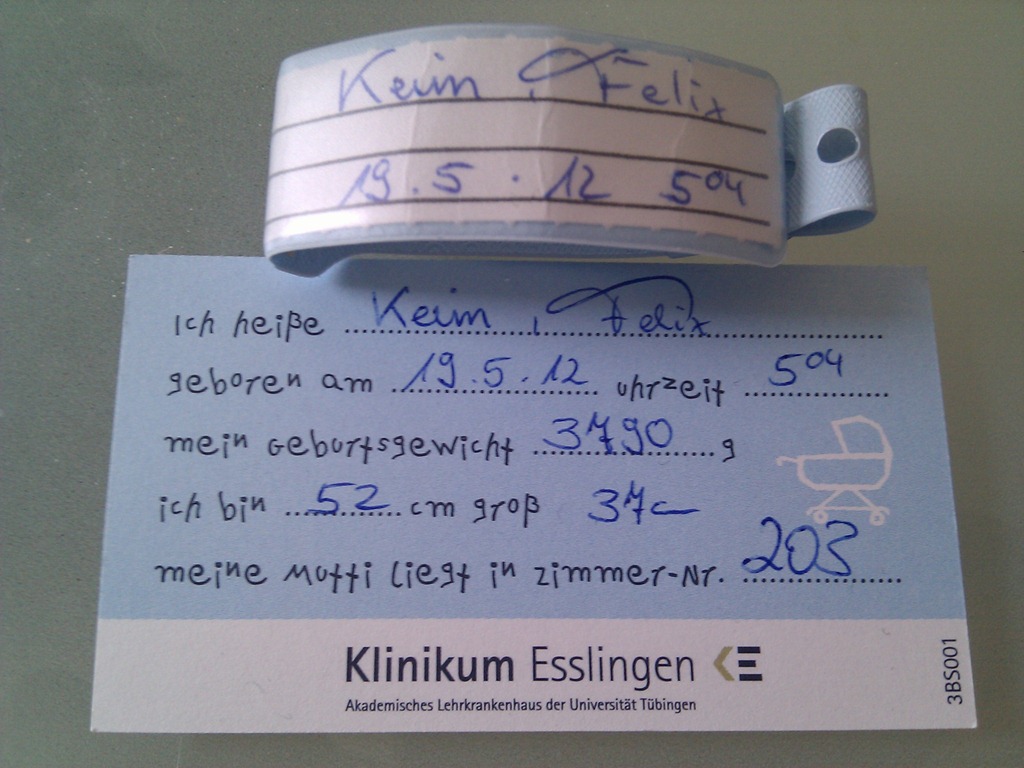 Keim, Felix
19.5.12 5⁰⁴
Ich heiße Keim, Felix
geboren am 19.5.12 uhrzeit 5⁰⁴
mein Geburtsgewicht 3790 g
ich bin 52 cm groß 37c
meine Mutti liegt in zimmer-Nr. 203
Klinikum Esslingen KE
Akademisches Lehrkrankenhaus der Universität Tübingen
3BS001